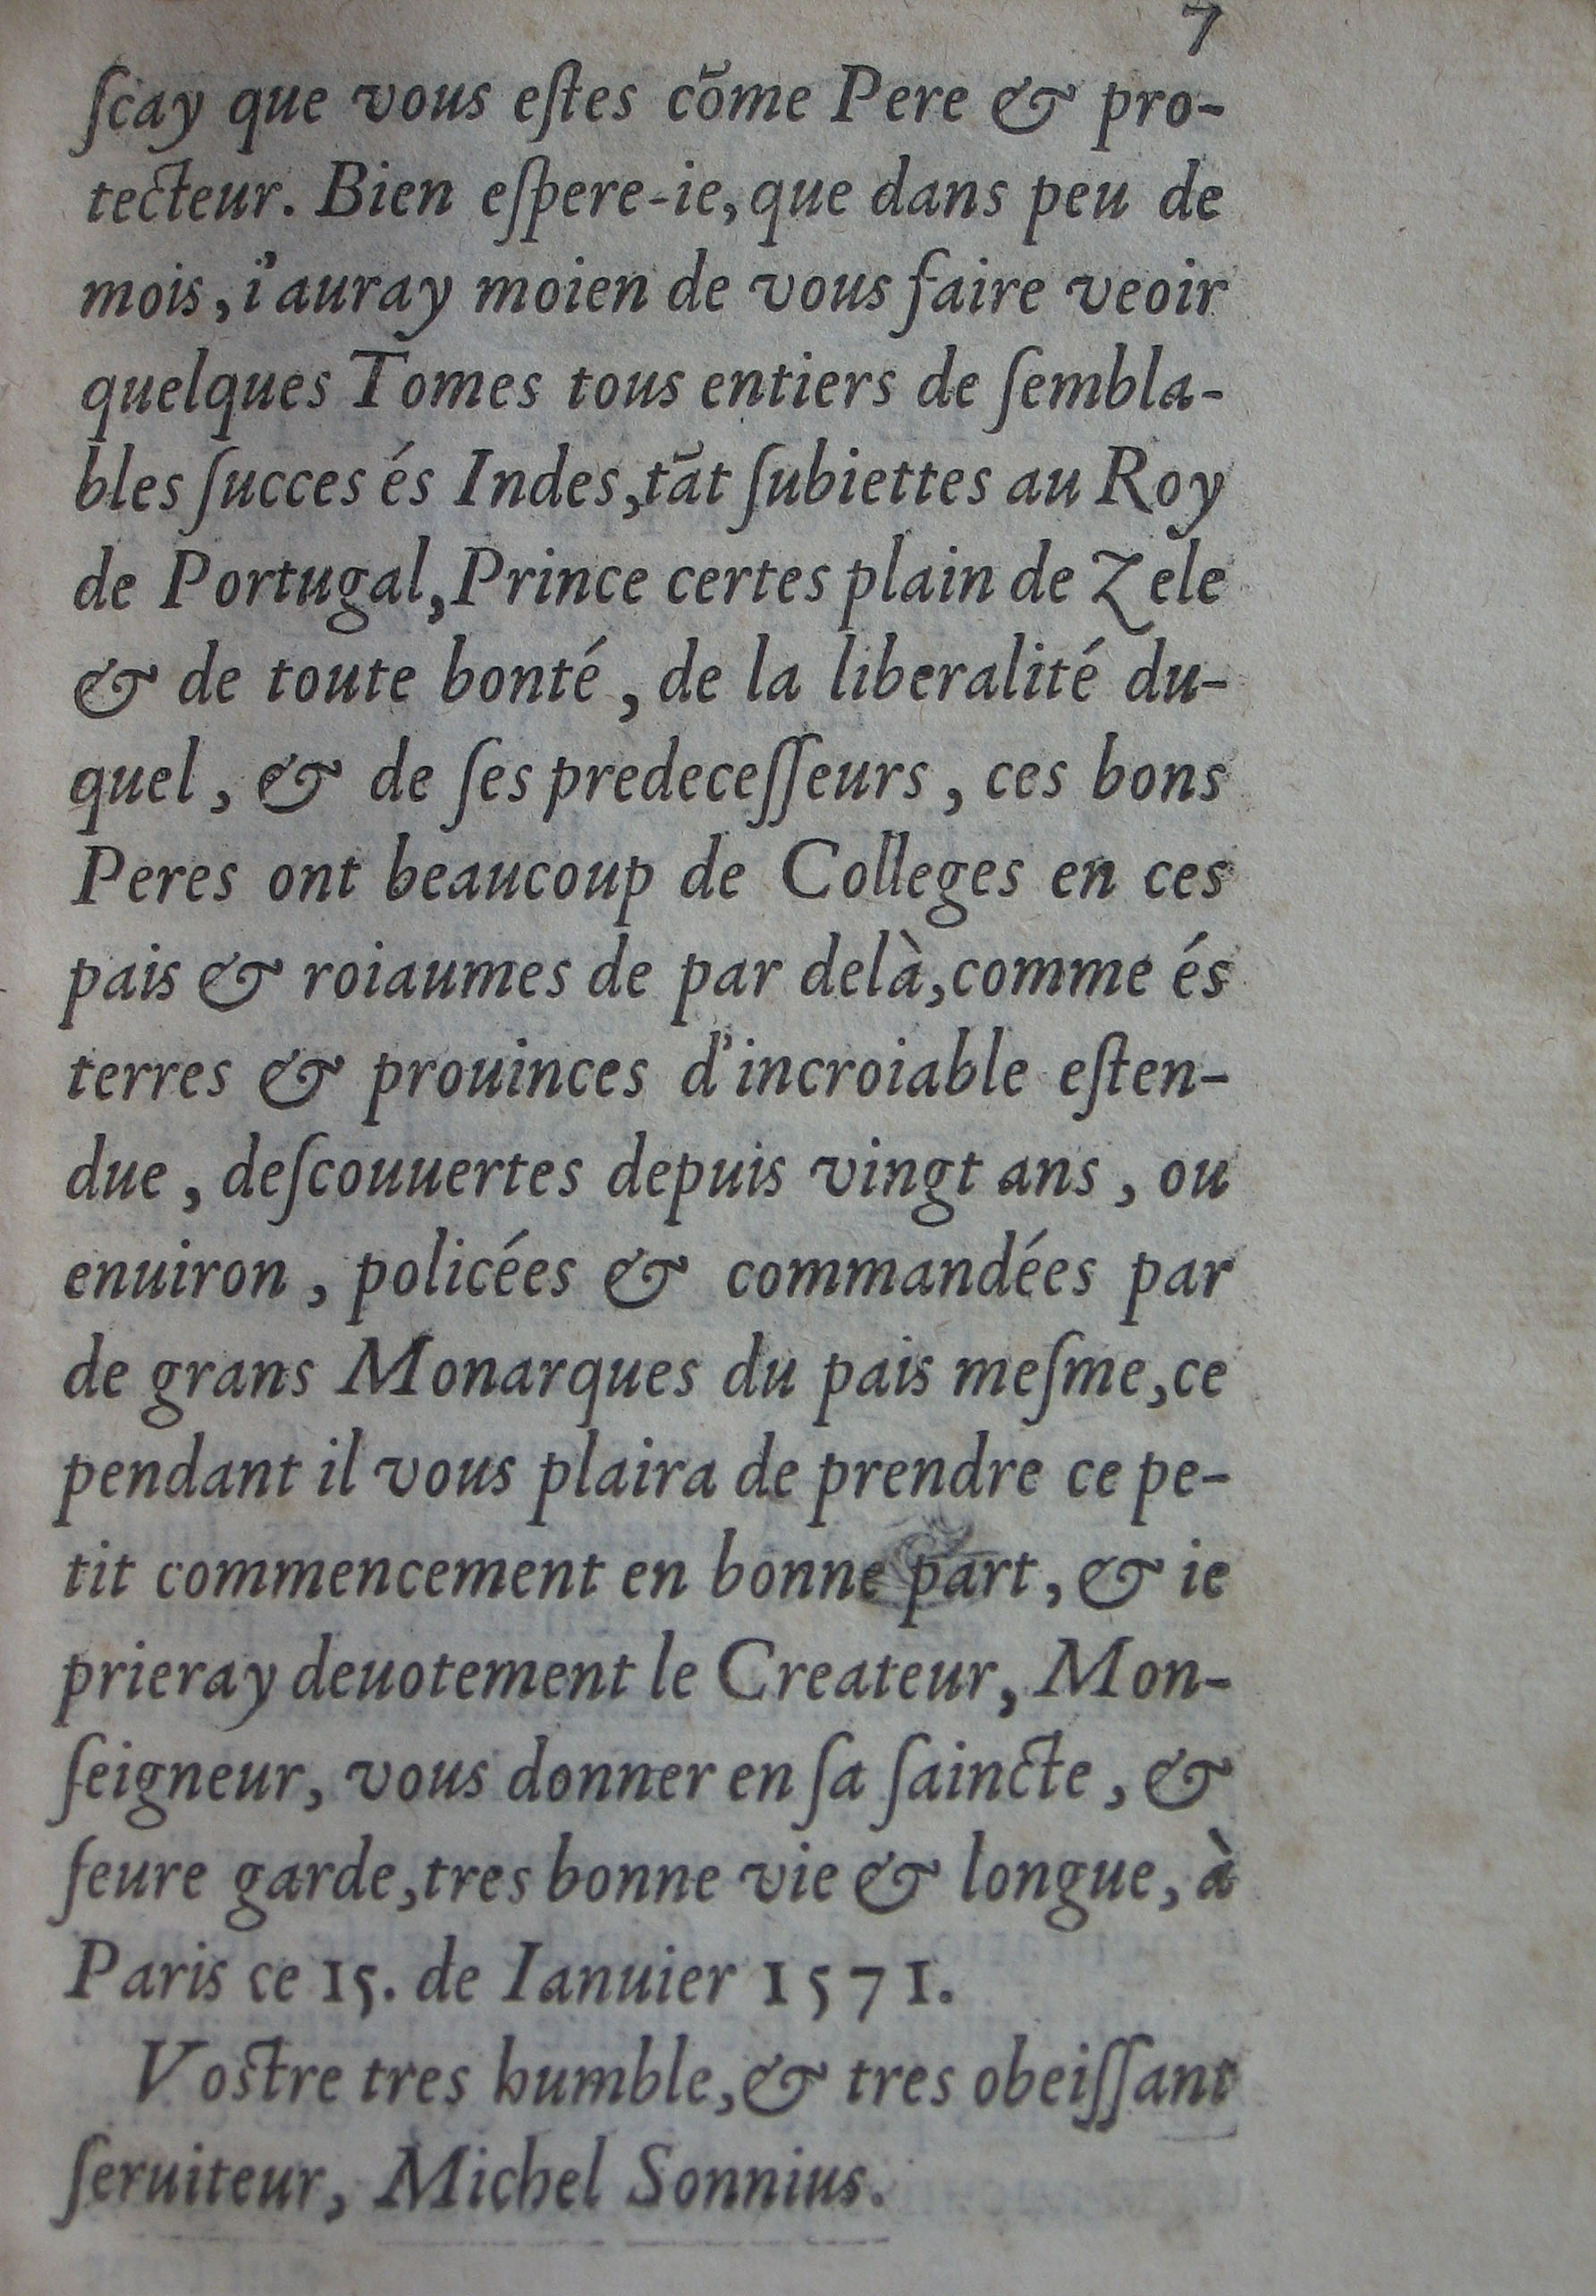 7
ſcay que vous eſtes cõme Pere & pro-
tecteur. Bien eſpere-ie, que dans peu de
mois, i'auray moien de vous faire veoir
quelques Tomes tous entiers de ſembla-
bles ſucces és Indes, tãt ſubiettes au Roy
de Portugal, Prince certes plain de Zele
& de toute bonté, de la liberalité du-
quel, & de ſes predeceſſeurs, ces bons
Peres ont beaucoup de Colleges en ces
pais & roiaumes de par delà, comme és
terres & prouinces d'incroiable eſten-
due, deſcouuertes depuis vingt ans, ou
enuiron, policées & commandées par
de grans Monarques du pais meſme, ce
pendant il vous plaira de prendre ce pe-
tit commencement en bonne part, & ie
prieray deuotement le Createur, Mon-
ſeigneur, vous donner en ſa ſaincte, &
ſeure garde, tres bonne vie & longue, à
Paris ce 15. de Ianuier 1571.
Voſtre tres humble, & tres obeiſſant
ſeruiteur, Michel Sonnius.